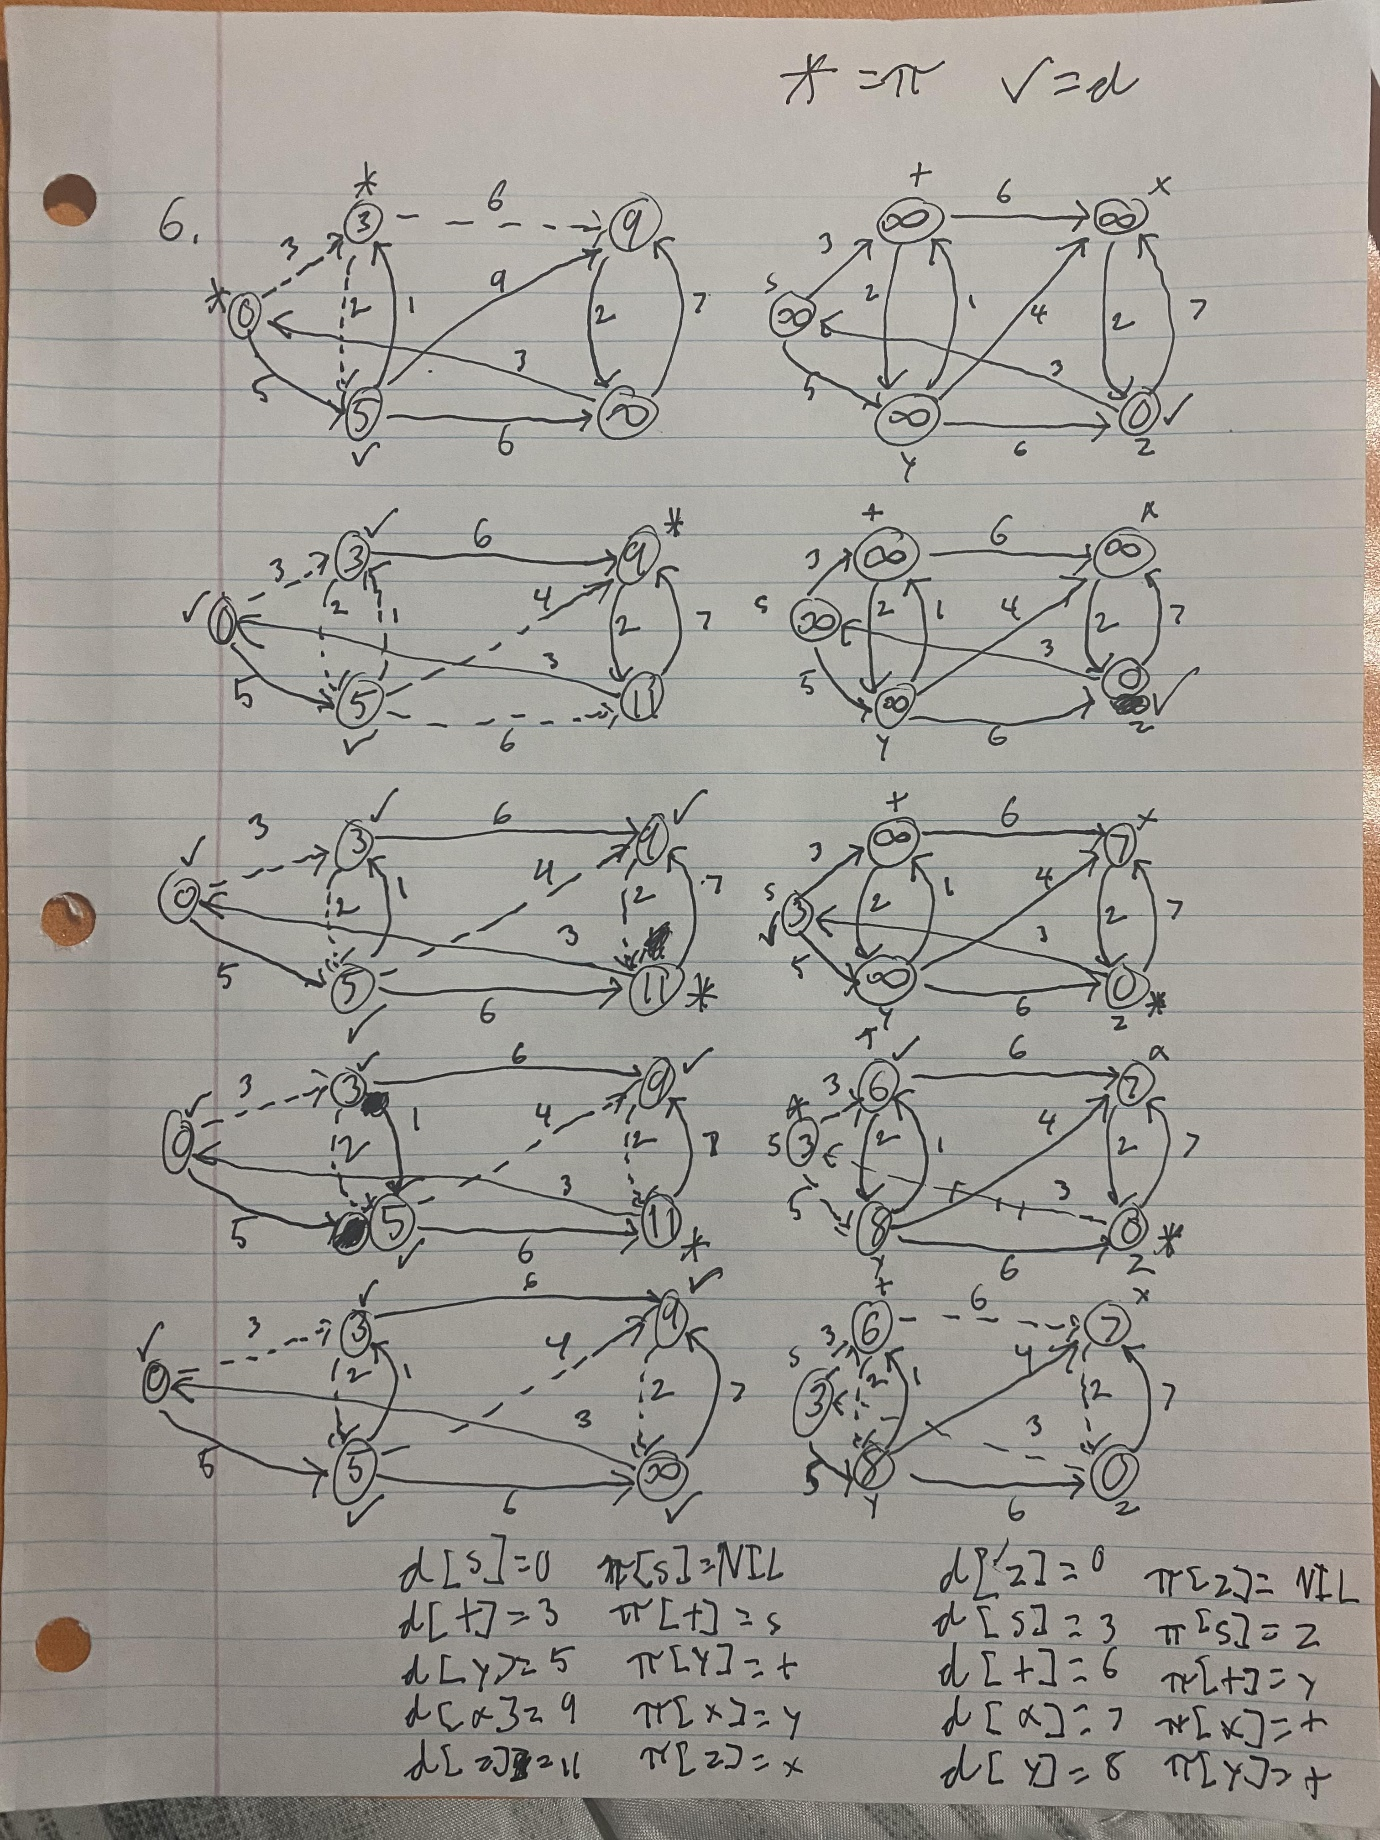 * = π ✓ = d
6.
* 3 6 9 3 * 0 2 1 9 2 7 5 3 5 6 ∞ ✓
t ∞ 6 ∞ x 3 s ∞ 2 1 4 2 7 5 3 ∞ 6 0 ✓ y z
3 ✓ 6 9 * 3 ✓ 0 2 1 4 2 7 5 3 5 6 11 ✓
t ∞ 6 ∞ x 3 s ∞ 2 1 4 2 7 5 3 ∞ 6 0 ✓ y z
3 3 ✓ 6 9 ✓ ✓ 0 2 1 4 2 7 5 3 5 6 11 * ✓
t ∞ 6 7 x 3 s 3 ✓ 2 1 4 2 7 5 3 ∞ 6 0 * y z
3 3 ✓ 6 9 ✓ ✓ 0 2 1 4 2 7 5 3 5 6 11 * ✓
t 6 ✓ 6 7 x 3 * s 3 2 1 4 2 7 5 3 8 6 0 * y z
3 3 ✓ 6 9 ✓ ✓ 0 2 1 4 2 7 5 3 5 6 ∞ ✓ ✓
t 6 6 7 x 3 s 3 2 1 4 2 7 5 3 8 6 0 y z
d[s]=0 π[s]=NIL
d[t]=3 π[t]=s
d[y]=5 π[y]=t
d[x]=9 π[x]=y
d[z]=11 π[z]=x
d[z]=0 π[z]=NIL
d[s]=3 π[s]=z
d[t]=6 π[t]=y
d[x]=7 π[x]=t
d[y]=8 π[y]=t